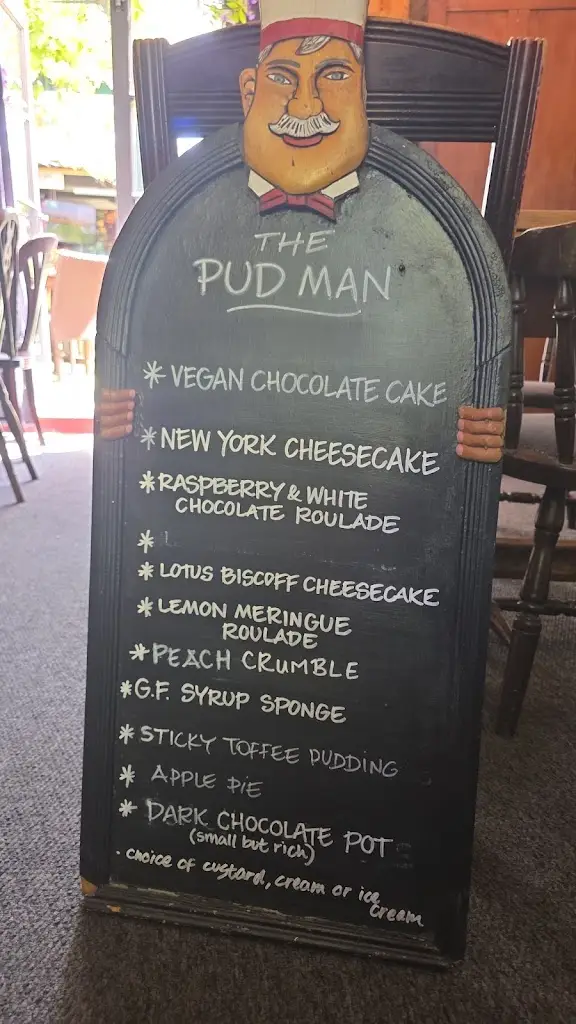 THE
PUD MAN
* VEGAN CHOCOLATE CAKE
* NEW YORK CHEESECAKE
* RASPBERRY & WHITE
CHOCOLATE ROULADE
*
* LOTUS BISCOFF CHEESECAKE
* LEMON MERINGUE
ROULADE
* PEACH CRUMBLE
* G.F. SYRUP SPONGE
* STICKY TOFFEE PUDDING
* APPLE PIE
* DARK CHOCOLATE POT
(small but rich)
- choice of custard, cream or ice
cream